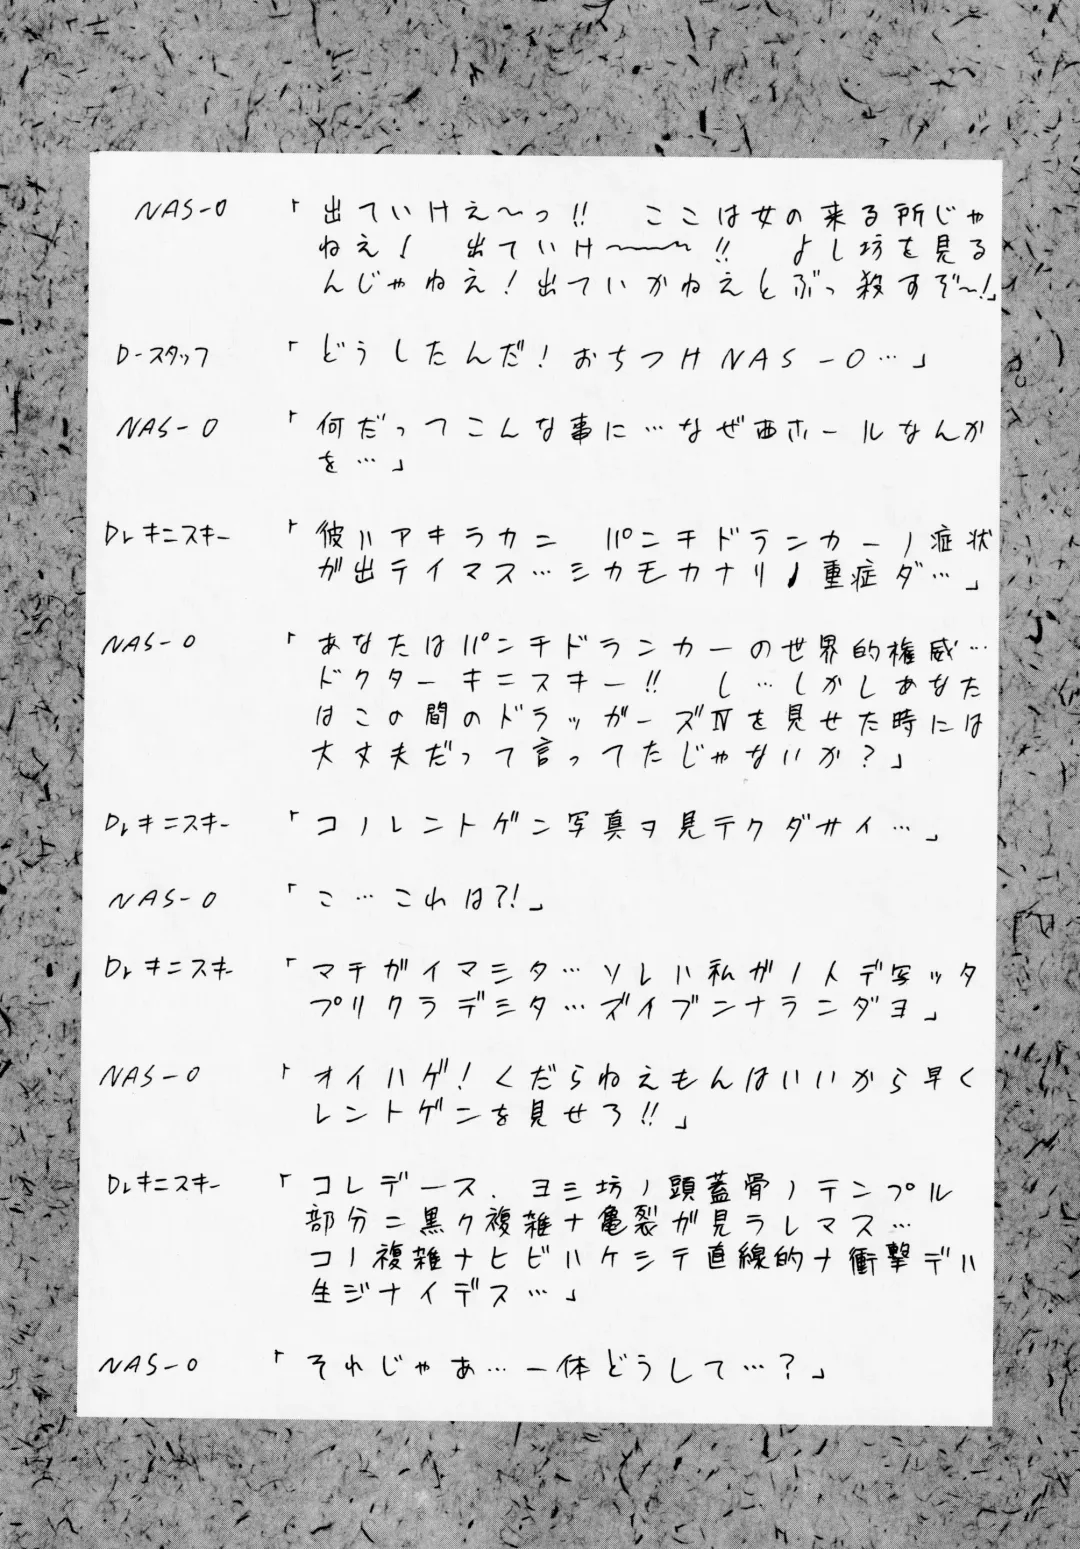 NAS-O 「出ていけえ〜っ!! ここは女の来る所じゃ
ねえ! 出ていけ〜〜〜!! よし坊を見る
んじゃねえ!出ていかねえとぶっ殺すぞ〜!」
D-スタッフ 「どうしたんだ!おちつけNAS-O…」
NAS-O 「何だってこんな事に…なぜ西ホールなんか
を…」
Dr.キニスキー 「彼ハアキラカニ パンチドランカーノ症状
が出テイマス…シカモカナリノ重症ダ…」
NAS-O 「あなたはパンチドランカーの世界的権威…
ドクターキニスキー!! し…しかしあなた
はこの間のドラッガーズⅣを見せた時には
大丈夫だって言ってたじゃないか?」
Dr.キニスキー 「コノレントゲン写真ヲ見テクダサイ…」
NAS-O 「こ…これは?!」
Dr.キニスキー 「マチガイマシタ…ソレハ私ガノトデ写ッタ
プリクラデシタ…ズイブンナランダヨ」
NAS-O 「オイハゲ!くだらねえもんはいいから早く
レントゲンを見せろ!!」
Dr.キニスキー 「コレデース. ヨシ坊ノ頭蓋骨ノテンプル
部分ニ黒ク複雑ナ亀裂ガ見ラレマス…
コノ複雑ナヒビハケシテ直線的ナ衝撃デハ
生ジナイデス…」
NAS-O 「それじゃあ…一体どうして…?」